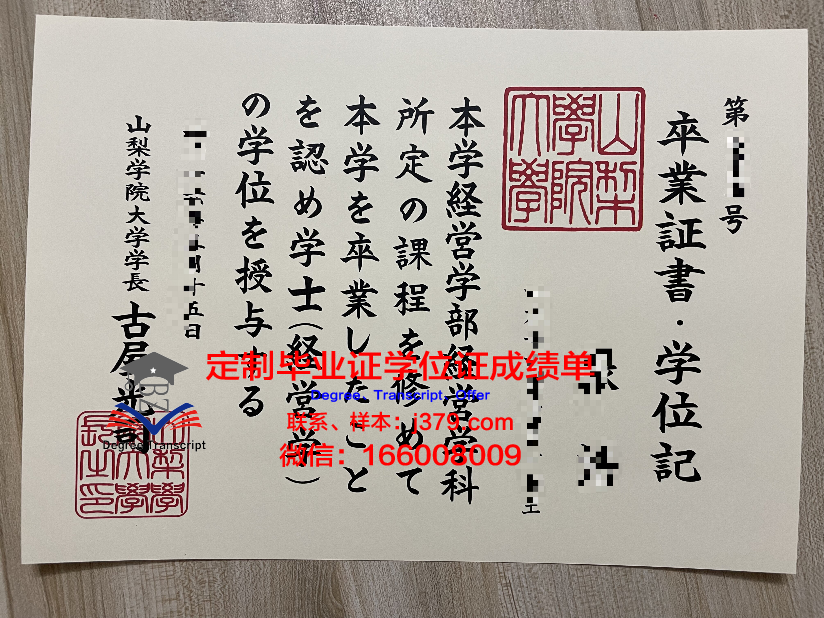 第
号
卒業証書・学位記
山梨
學院
大學
本学経営学部経営学科
所定の課程を修めて
本学を卒業したこと
を認め学士(経営学)
の学位を授与する
月十五日
山梨学院大学学長 古屋光司
定制毕业证学位证成绩单
Degree、Transcript、Offer
联系、样本：j379.com
微信：166008009
Degree Transcript